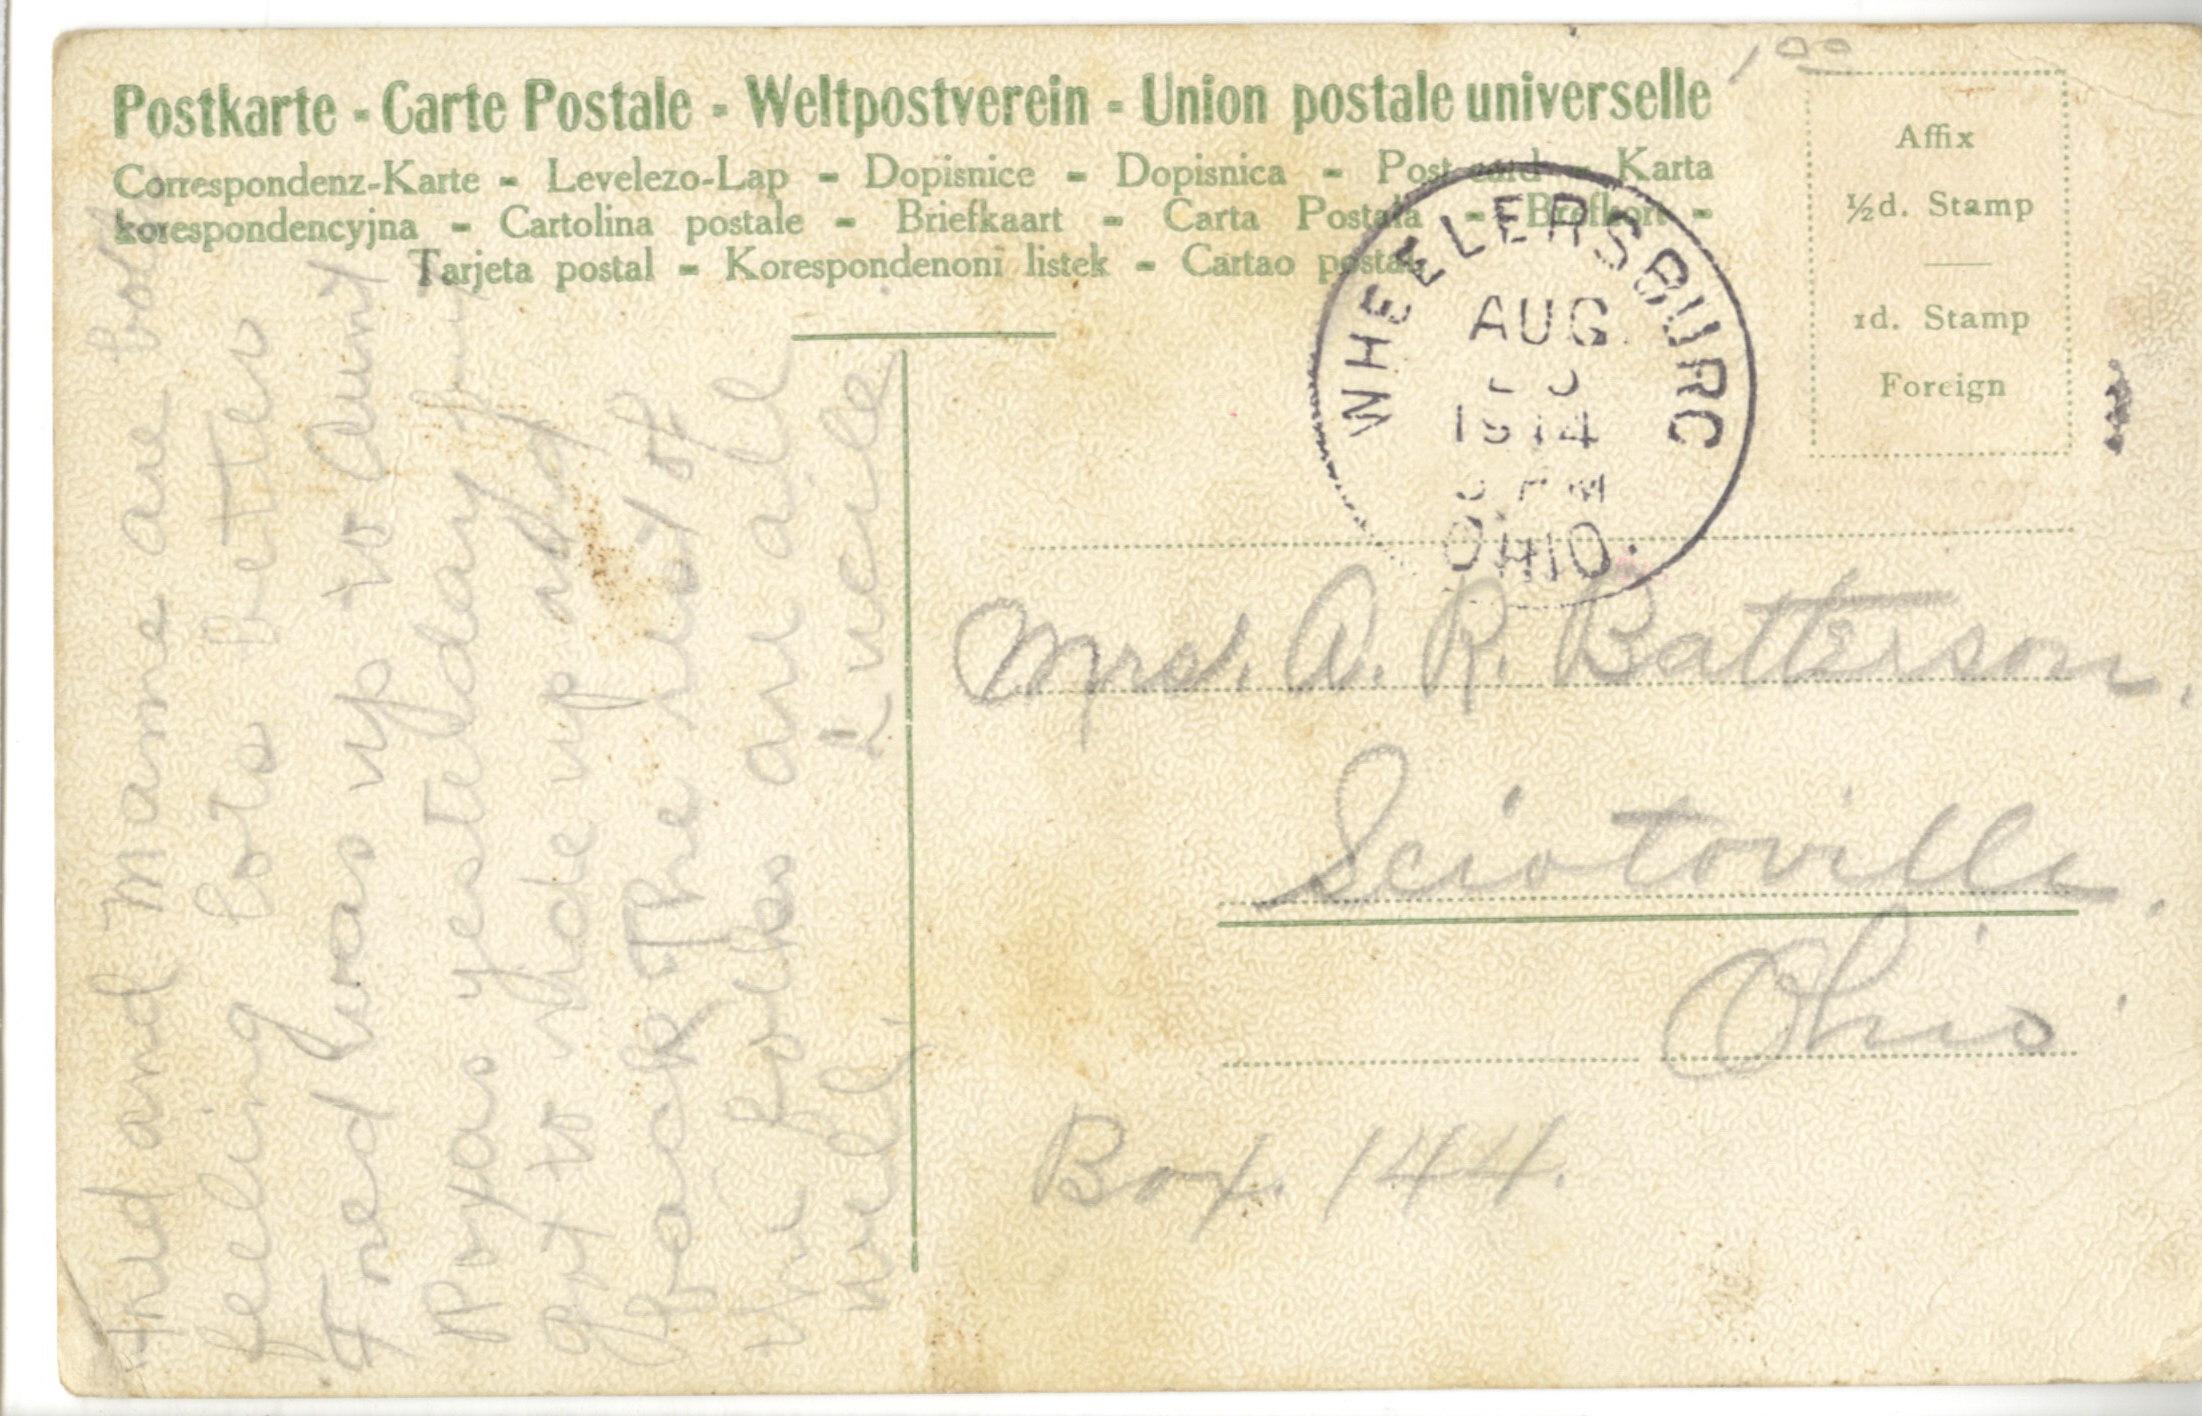 1 00
Postkarte - Carte Postale - Weltpostverein - Union postale universelle
Correspondenz-Karte - Levelezo-Lap - Dopisnice - Dopisnica - Post-card - Karta
korespondencyjna - Cartolina postale - Briefkaart - Carta Postala - Brefkort -
Tarjeta postal - Korespondenoni listek - Cartao postal
Affix
½d. Stamp
1d. Stamp
Foreign
WHEELERSBURG
AUG
1914
OHIO.
Fred and Mame are both
feeling lots better
Fred was up to Aunt
yesterday but
got to ride up and
back The rest of
the folks are all
well. Lucile
Mrs. A. R. Batterson.
Sciotoville.
Ohio
Box. 144.